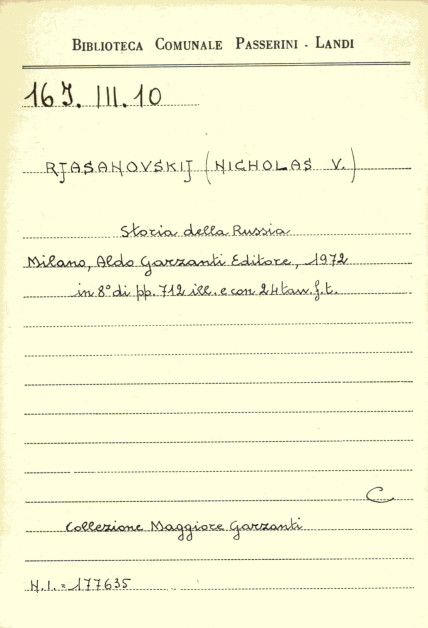 BIBLIOTECA COMUNALE PASSERINI - LANDI
16 J. III. 10
RJASANOVSKIJ (NICHOLAS V.)
Storia della Russia
Milano, Aldo Garzanti Editore, 1972
in 8° di pp. 712 ill. e con 24 tav. f.t.
C
Collezione Maggiore Garzanti
N.I. = 177635